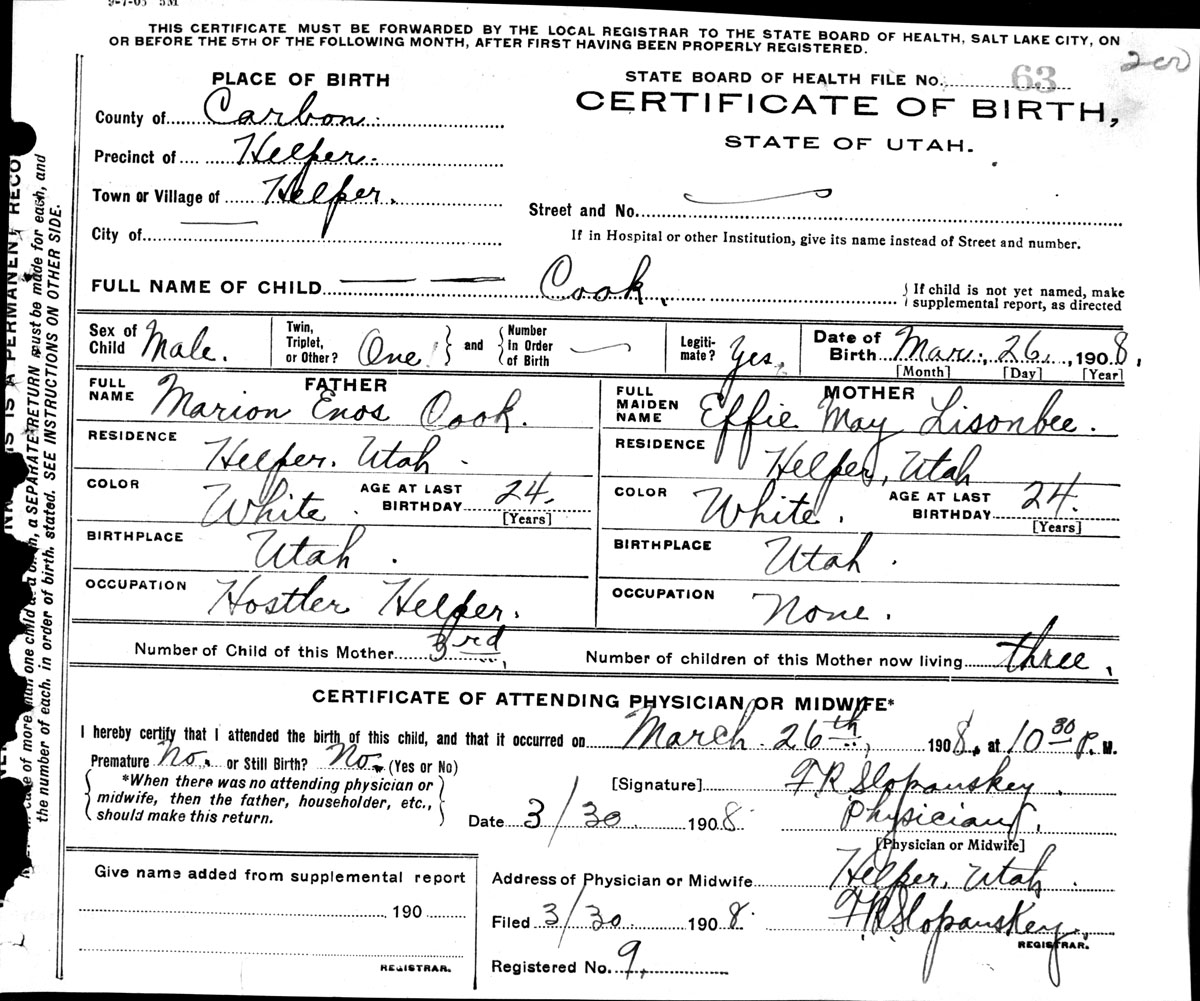 9-7-05 5M
THIS CERTIFICATE MUST BE FORWARDED BY THE LOCAL REGISTRAR TO THE STATE BOARD OF HEALTH, SALT LAKE CITY, ON
OR BEFORE THE 5TH OF THE FOLLOWING MONTH, AFTER FIRST HAVING BEEN PROPERLY REGISTERED.
PLACE OF BIRTH
STATE BOARD OF HEALTH FILE No. 63
CERTIFICATE OF BIRTH,
STATE OF UTAH.
County of Carbon.
Precinct of Helper.
Town or Village of Helper.
City of
Street and No.
If in Hospital or other Institution, give its name instead of Street and number.
FULL NAME OF CHILD Cook.
If child is not yet named, make
supplemental report, as directed
Sex of Child Male.
Twin, Triplet, or Other? One and Number In Order of Birth
Legiti-mate? Yes.
Date of Birth Mar., 26, 1908,
[Month] [Day] [Year]
FATHER
FULL NAME Marion Enos Cook.
RESIDENCE Helper. Utah.
COLOR White. AGE AT LAST BIRTHDAY 24. [Years]
BIRTHPLACE Utah.
OCCUPATION Hostler Helper.
MOTHER
FULL MAIDEN NAME Effie May Lisonbee.
RESIDENCE Helper, Utah
COLOR White. AGE AT LAST BIRTHDAY 24. [Years]
BIRTHPLACE Utah.
OCCUPATION None.
Number of Child of this Mother 3rd, Number of children of this Mother now living three,
CERTIFICATE OF ATTENDING PHYSICIAN OR MIDWIFE*
I hereby certify that I attended the birth of this child, and that it occurred on March 26th, 1908, at 10 30 P. M.
Premature No. or Still Birth? No. (Yes or No)
*When there was no attending physician or
midwife, then the father, householder, etc.,
should make this return.
[Signature] F.R. Slopanskey.
Date 3/30 1908. Physician.
[Physician or Midwife]
Address of Physician or Midwife Helper, Utah.
Filed 3/30 1908. F.R. Slopanskey.
REGISTRAR.
Registered No. 9.
Give name added from supplemental report
190
REGISTRAR.
one child at a birth, a SEPARATE RETURN must be made for each, and
the number of each, in order of birth, stated. SEE INSTRUCTIONS ON OTHER SIDE.
IS A PERMANENT RECO